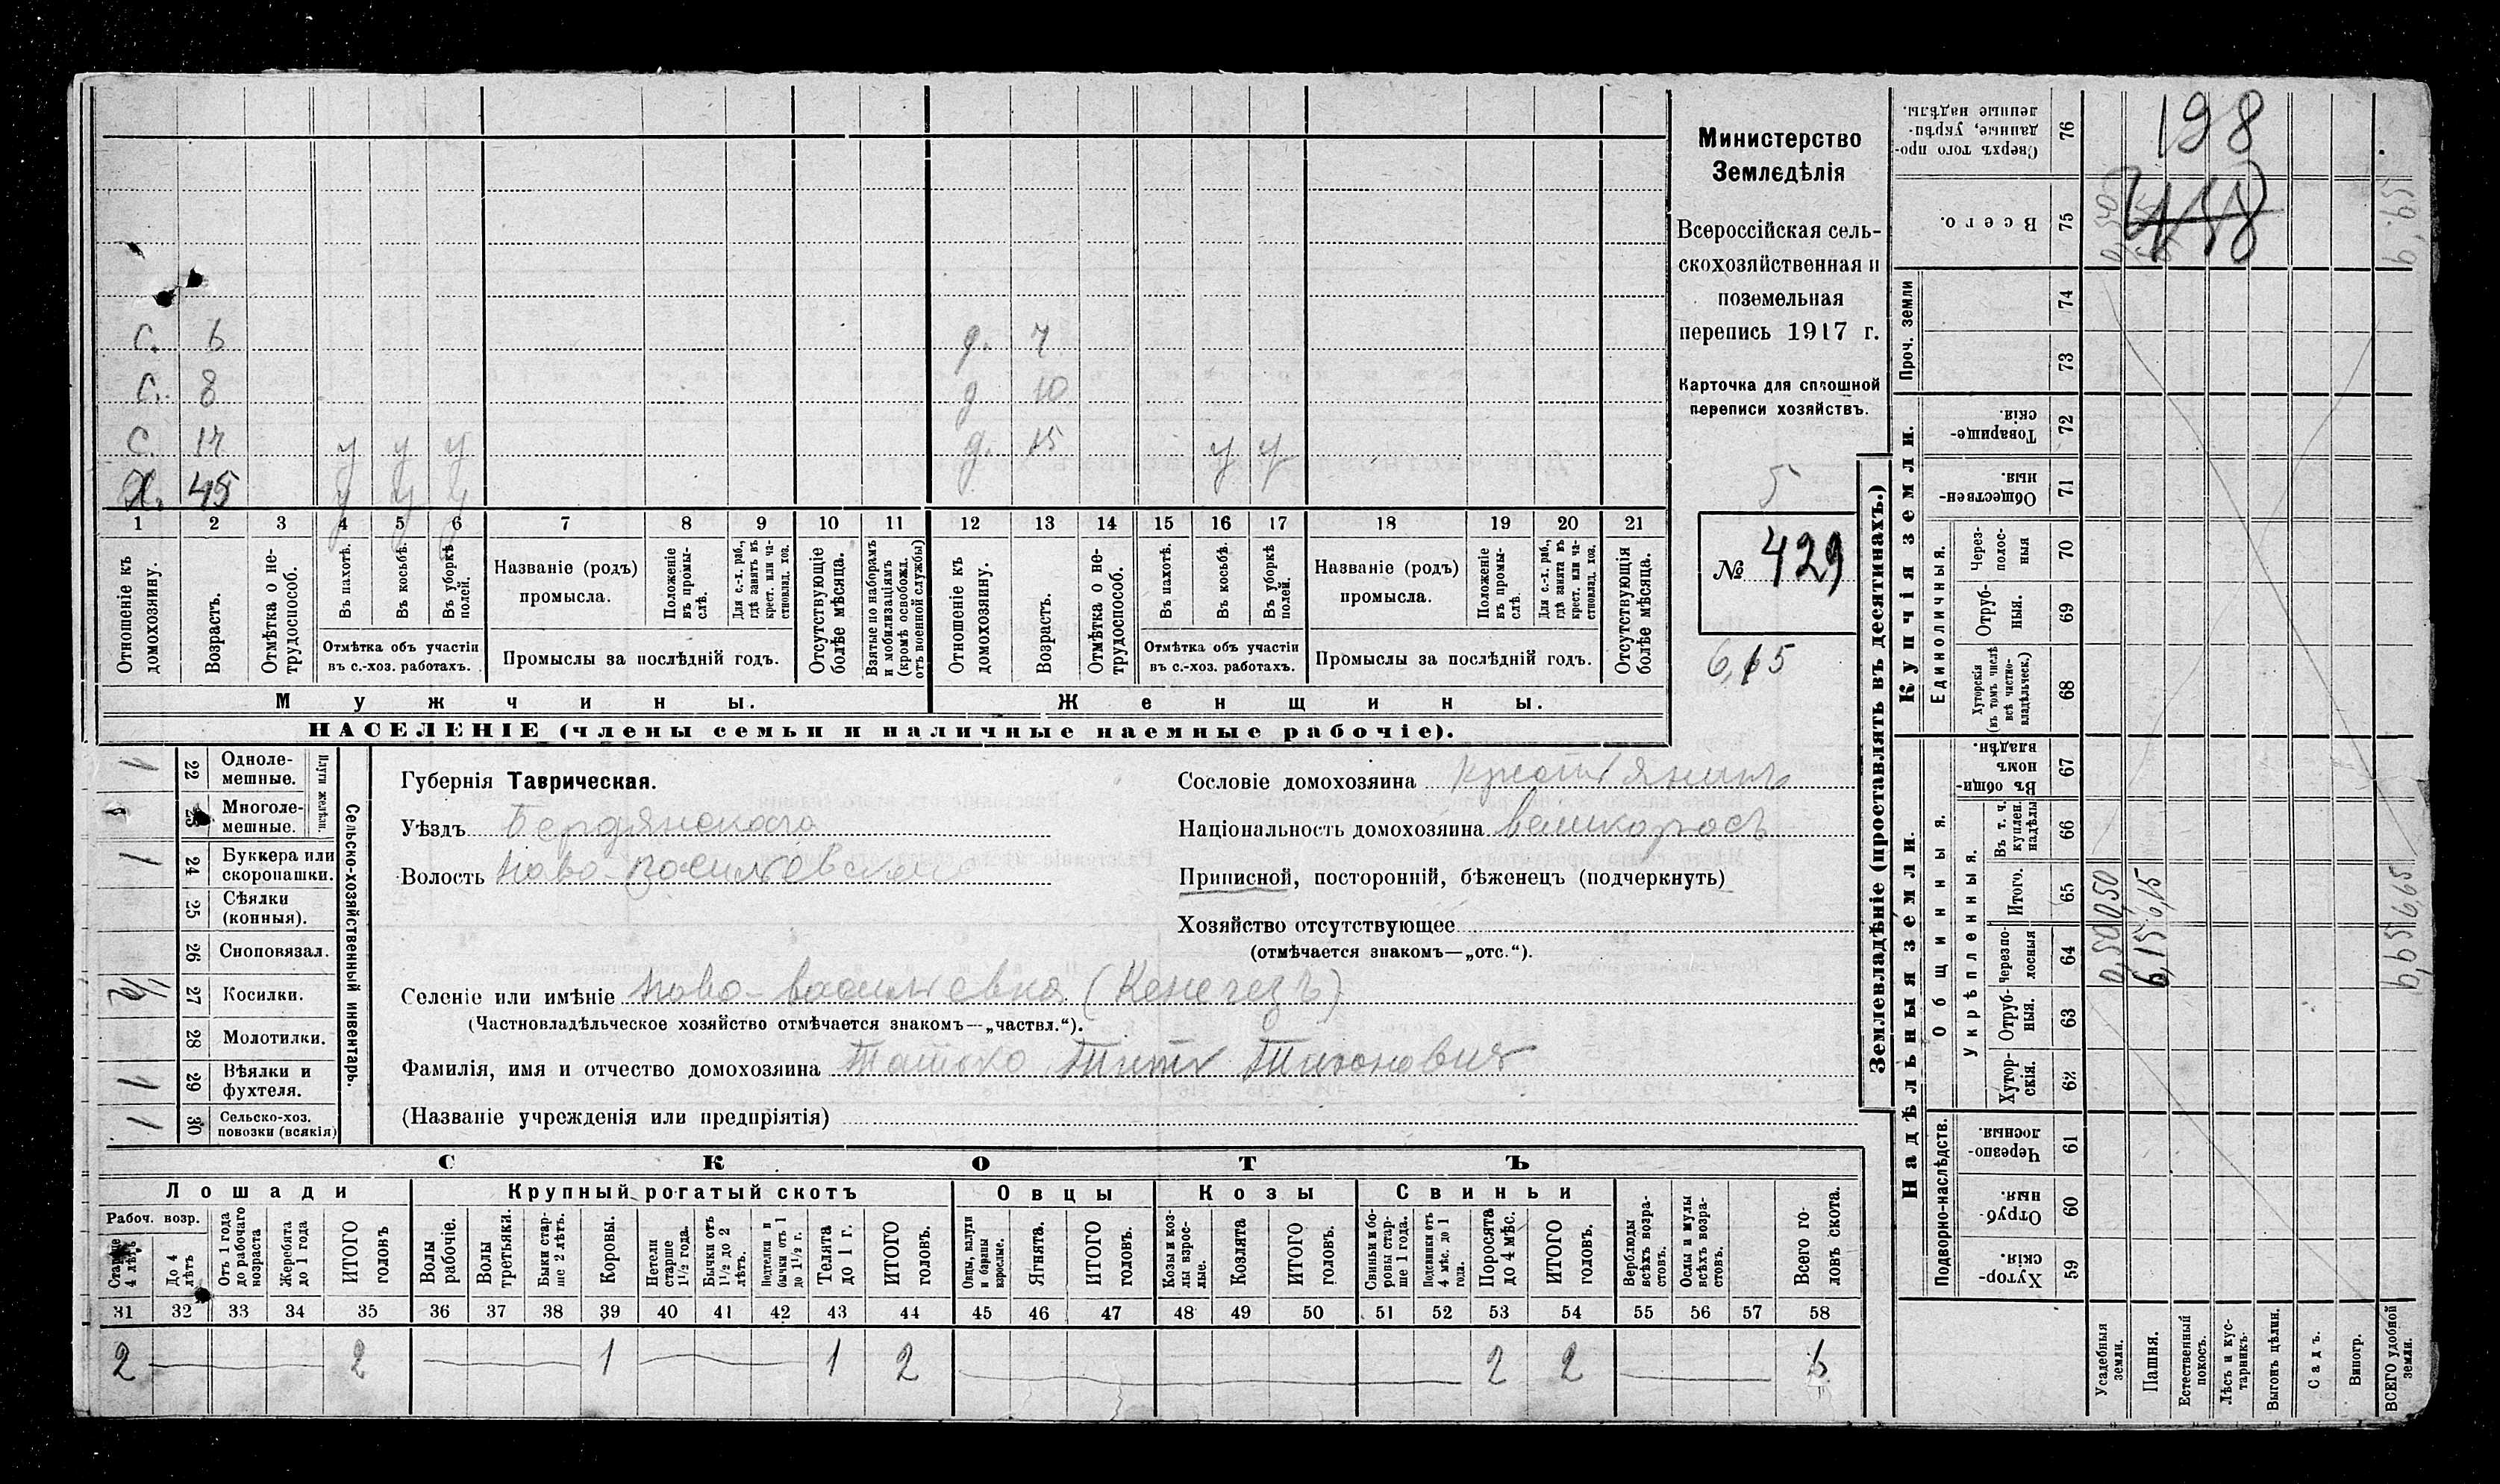 Министерство
Земледѣлія
Всероссійская сель-
скохозяйственная и
поземельная
перепись 1917 г.
Карточка для сплошной
переписи хозяйствъ.
5
№ 429
6,15
с. 6
с. 8
с. 17 у у у
х. 45 у у у
д. 7
д. 10
д. 15 у у
1 2 3 4 5 6 7 8 9 10 11 12 13 14 15 16 17 18 19 20 21
Отношеніе къ домохозяину.
Возрастъ.
Отмѣтка о не-трудоспособ.
Въ пахотѣ.
Въ косьбѣ.
Въ уборкѣ полей.
Отмѣтка объ участіи
въ с.-хоз. работахъ.
Названіе (родъ)
промысла.
Положеніе въ промы-слѣ.
Для с.-х. раб., гдѣ занять въ крест. или ча-стновлад. хоз.
Промыслы за послѣдній годъ.
Отсутствующіе болѣе мѣсяца.
Взятые по наборамъ и мобилизаціямъ (кромѣ освобожд. отъ военной службы)
Отношеніе къ домохозяину.
Возрастъ.
Отмѣтка о не-трудоспособ.
Въ пахотѣ.
Въ косьбѣ.
Въ уборкѣ полей.
Отмѣтка объ участіи
въ с.-хоз. работахъ.
Названіе (родъ)
промысла.
Положеніе въ промы-слѣ.
Для с.-х. раб., гдѣ занята въ крест. или ча-стновлад. хоз.
Промыслы за послѣдній годъ.
Отсутствующія болѣе мѣсяца.
Мужчины.
Женщины.
НАСЕЛЕНІЕ (члены семьи и наличные наемные рабочіе).
Сельско-хозяйственный инвентарь.
Плуги желѣзн.
1 22 Одноле-мешные.
23 Многоле-мешные.
1 24 Буккера или скоропашки.
25 Сѣялки (конныя).
26 Сноповязал.
1/2 27 Косилки.
28 Молотилки.
1 29 Вѣялки и фухтеля.
1 30 Сельско-хоз. повозки (всякія)
Губернія Таврическая.
Уѣздъ Бердянскаго
Волость Ново-Васильевская
Сословіе домохозяина крестьянинъ
Національность домохозяина великороссъ
Приписной, посторонній, бѣженецъ (подчеркнуть)
Хозяйство отсутствующее
(отмѣчается знакомъ—„отс.“).
Селеніе или имѣніе Ново-васильевка (Кенегезъ)
(Частновладѣльческое хозяйство отмѣчается знакомъ—„частвл.“).
Фамилія, имя и отчество домохозяина Титъ Тихоновичъ
(Названіе учрежденія или предпріятія)
СКОТЪ
Лошади
Крупный рогатый скотъ
Овцы
Козы
Свиньи
Рабоч. возр.
Старше 4 лѣтъ
До 4 лѣтъ
Отъ 1 года до рабочаго возраста
Жеребята до 1 года
ИТОГО головъ
Волы рабочіе.
Волы третьяки.
Быки стар-ше 2 лѣтъ.
Коровы.
Нетели старше 1½ года.
Бычки отъ 1½ до 2 лѣтъ.
Подтелки и бычки отъ 1 до 1½ г.
Телята до 1 г.
ИТОГО головъ.
Овцы, валухи и бараны взрослые.
Ягнята.
ИТОГО головъ.
Козы и коз-лы взрос-лые.
Козлята
ИТОГО головъ.
Свиньи и бо-ровы стар-ше 1 года.
Подсвинки отъ 4 мѣс. до 1 года.
Поросята до 4 мѣс.
ИТОГО головъ.
Верблюды всѣхъ возра-стовъ.
Ослы и мулы всѣхъ возра-стовъ.
Всего го-ловъ скота.
31 32 33 34 35 36 37 38 39 40 41 42 43 44 45 46 47 48 49 50 51 52 53 54 55 56 57 58
2 2 1 1 2 2 2 6
Землевладѣніе (проставлять въ десятинахъ.)
Купчія земли.
Надѣльныя земли.
Сверхъ того про-данные, укрѣп-ленные надѣлы. 76
198
Всего. 75
6,65
Проч. земли
74
73
Товарище-скія. 72
Обществен-ныя 71
Единоличныя.
Через-полос-ныя 70
Отруб-ныя. 69
Хуторскія (въ томъ числѣ всѣ частно-владѣльческ.) 68
Общинныя.
Въ общин-номъ владѣн. 67
Укрѣпленныя.
Въ т. ч. куплен. надѣлы 66
Итого. 65 0,50 6,15 6,65
Черезпо-лосныя 64 0,50 6,15 6,65
Отруб-ныя. 63
Хутор-скія. 62
Подворно-наслѣдств.
Черезпо-лосныя. 61
Отруб-ныя. 60
Хутор-скія. 59
Усадебныя земли.
Пашня.
Естественный покосъ.
Лѣсъ и кус-тарникъ.
Выгонъ цѣлин.
Садъ.
Виногр.
ВСЕГО удобной земли.